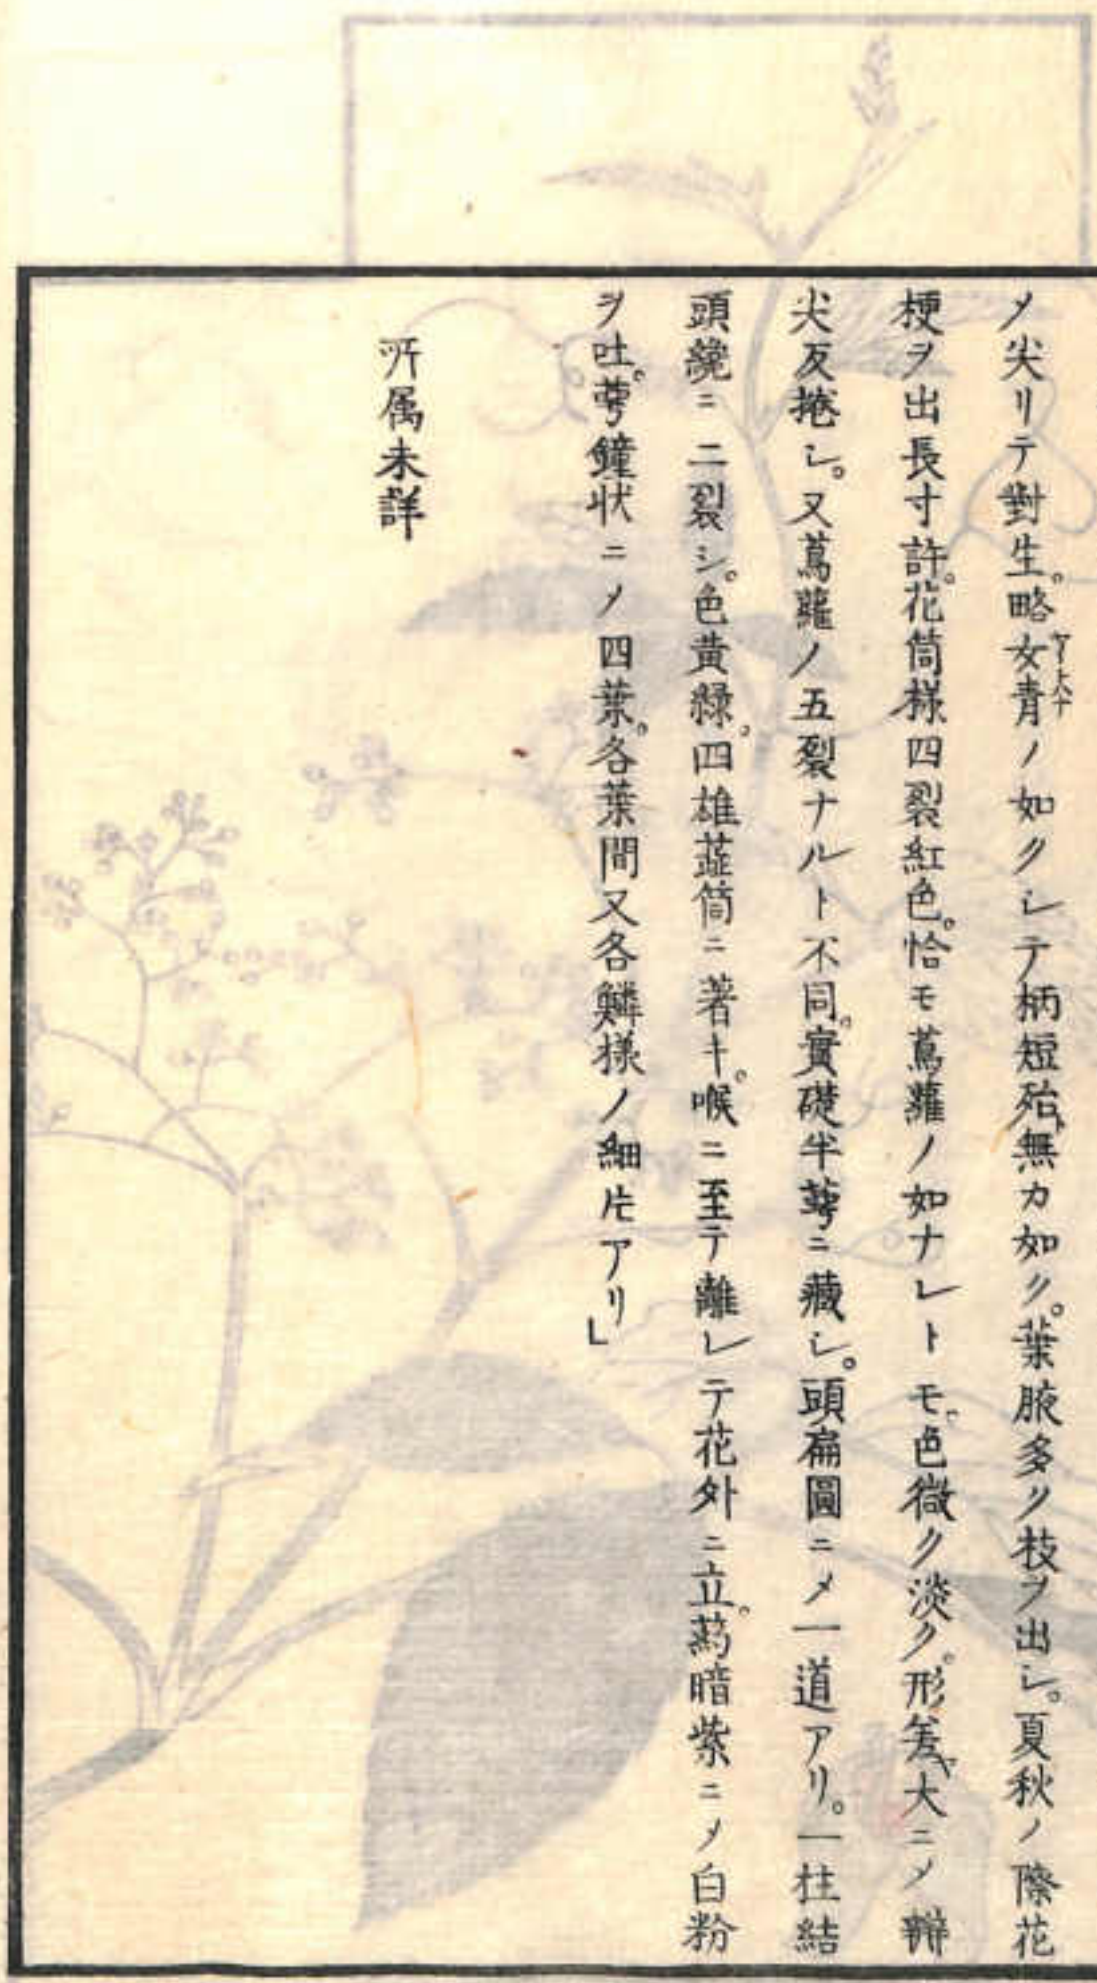 〆尖リテ對生。略女青ノ如クシテ柄短殆ト無カ如ク。葉腋多ク枝ヲ出シ。夏秋ノ際花
梗ヲ出長寸許。花筒様四裂紅色。恰モ蔦蘿ノ如ナレトモ。色微ク淡ク。形差ヤ大ニ〆瓣
尖反捲シ。又蔦蘿ノ五裂ナルト不同。實礎半萼ニ藏シ。頭扁圓ニ〆一道アリ。一柱結
頭纔ニ二裂シ。色黄緑。四雄蕋筒ニ著キ。喉ニ至テ離レテ花外ニ立。葯暗紫ニ〆白粉
ヲ吐。萼鐘状ニ〆四葉。各葉間又各鱗様ノ細片アリ」
所属未詳